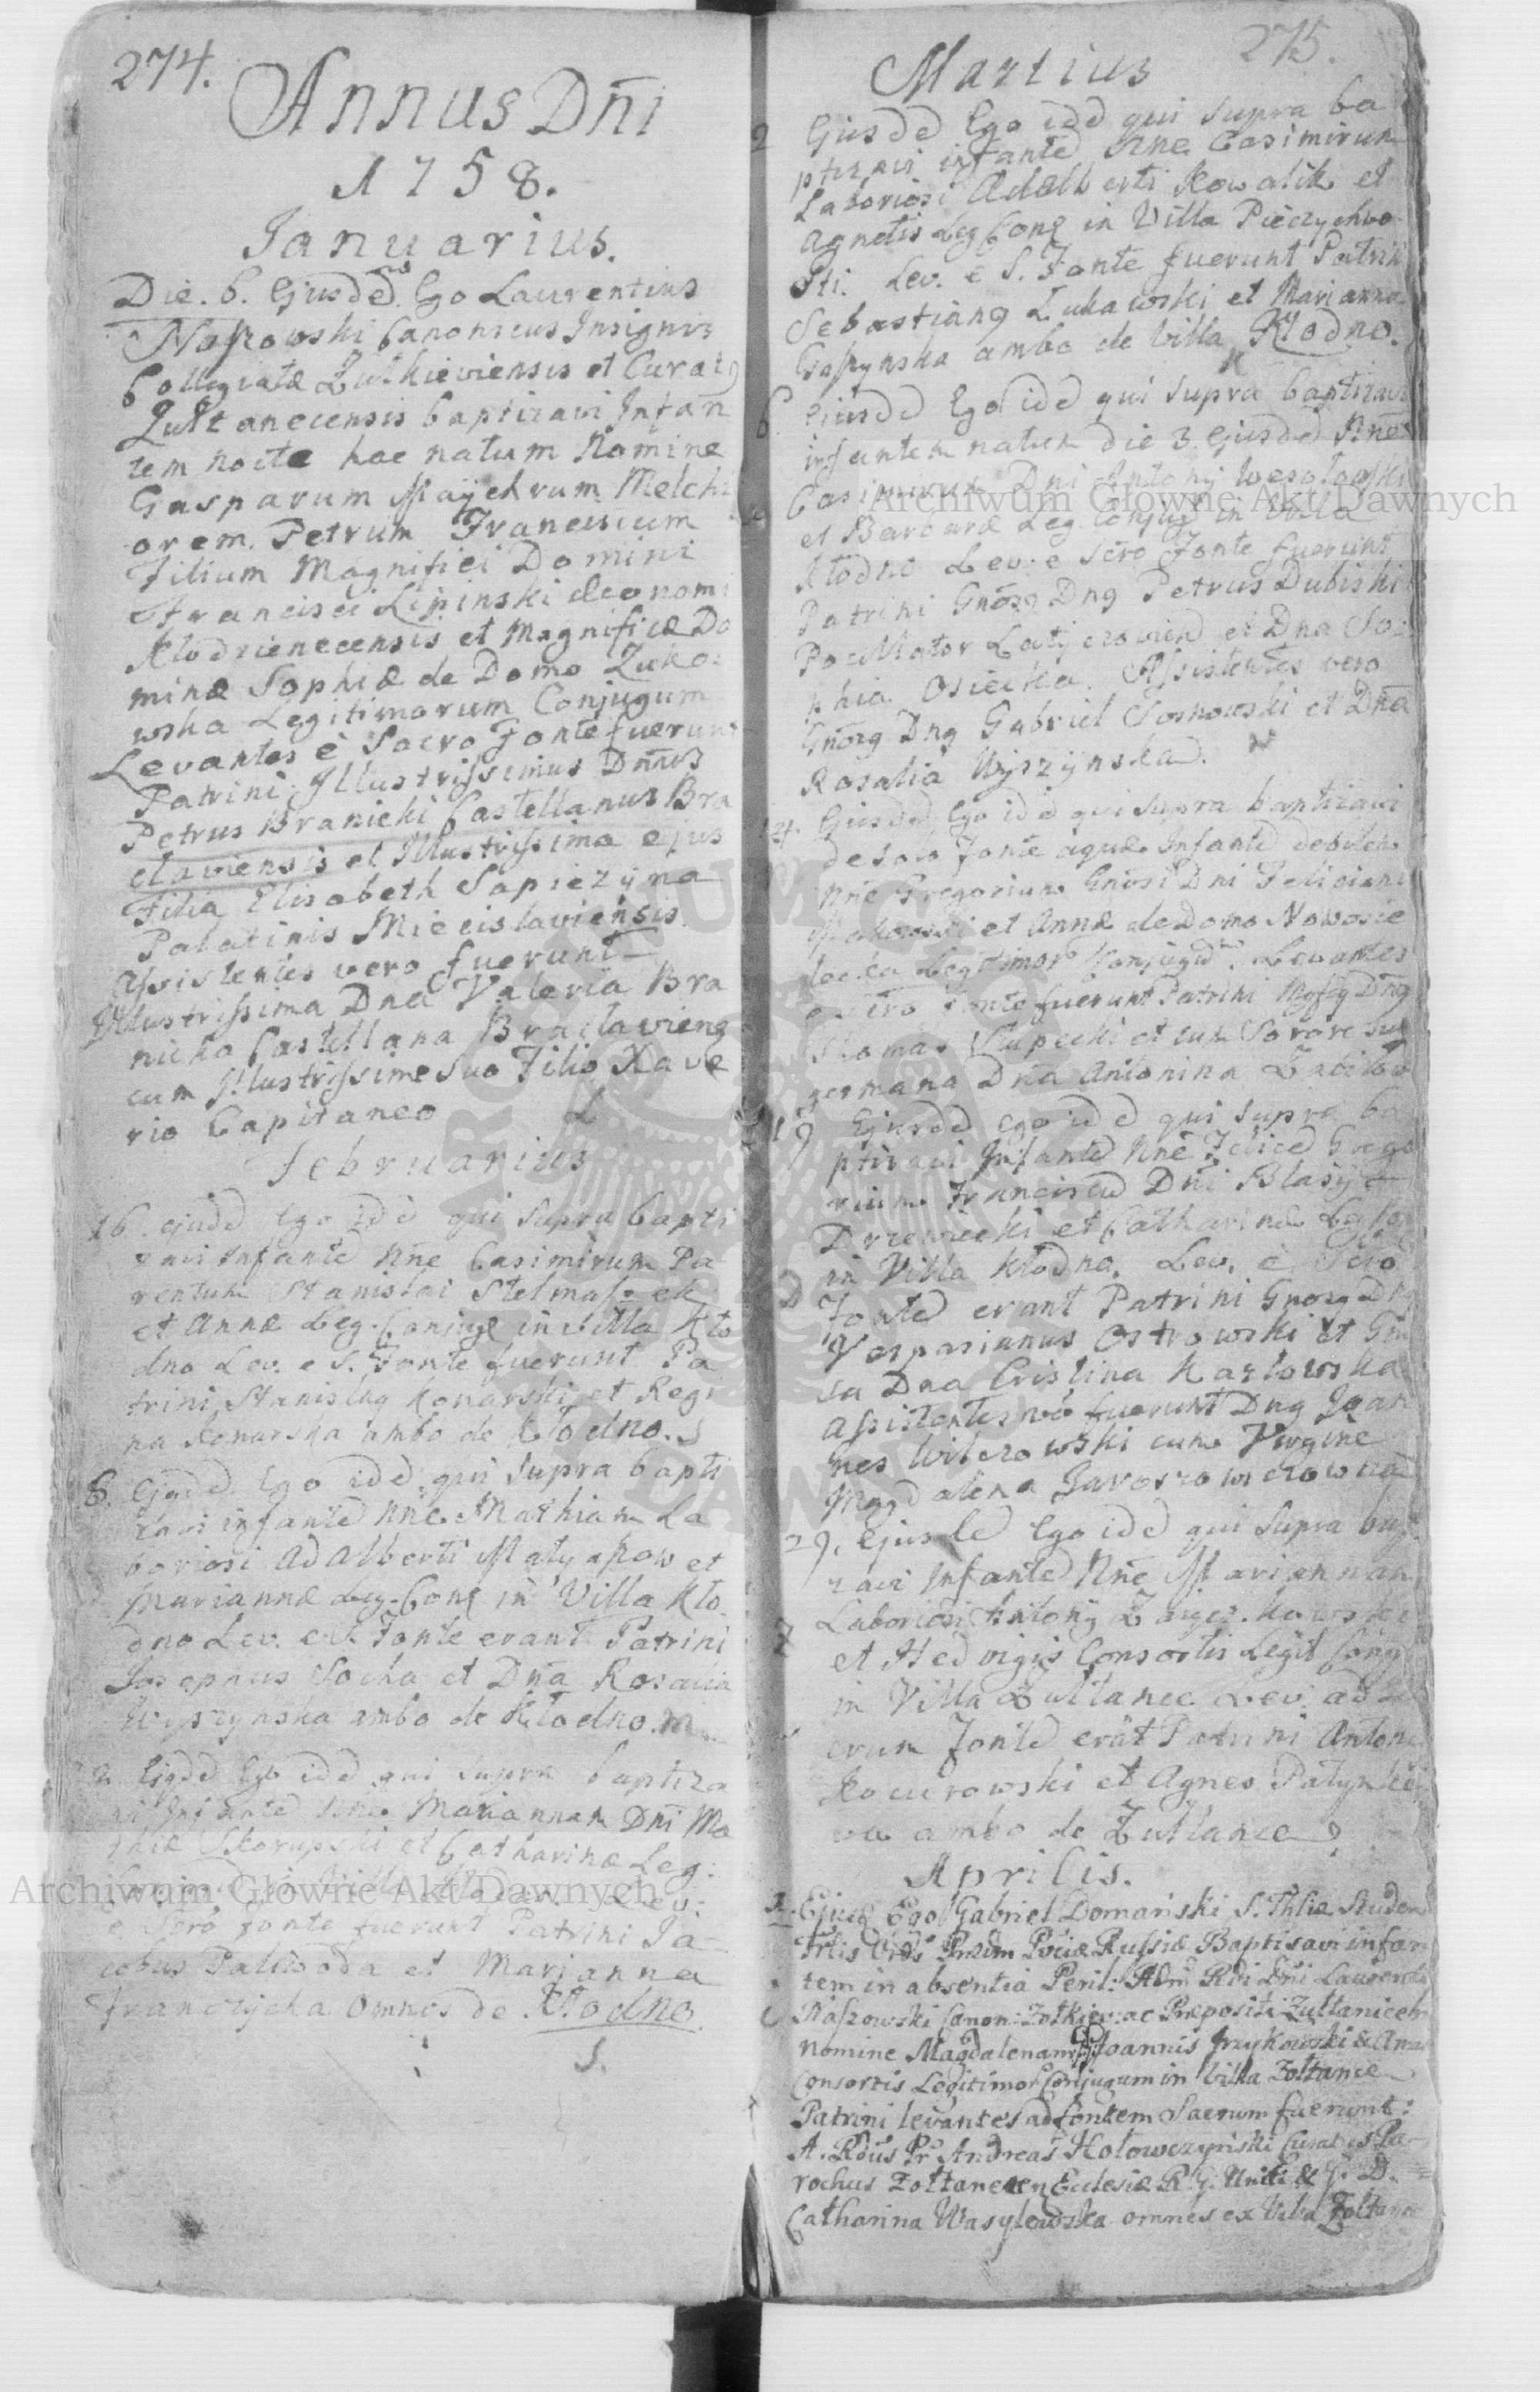 274.
Annus Dñi
1758.
Januarius.
Die. 6. Ejusdẽ Ego Laurentius
Naszowski Canonicus Insignis
Collegiatæ Zułkieviensis et Curatꝯ
Zułtanecensis baptizavi Infan
tem nocte hac natum Nomine
Gasparum Maÿchrum Melchi
orem. Petrum Franciscum
Filium Magnifici Domini
Francisci Lipinski Œconomi
Kłodzienecensis et Magnificæ Do
minæ Sophiæ de Domo Zuko:
wska Legitimorum Conjugum
Levantes è Sacro Fonte fuerunt
Patrini: Illustrissimus Dñnus
Petrus Branicki Castellanus Bra
claviensis et Illustrissima ejus
Filia Elisabeth Sapiezÿna
Palatinis Mieeislaviensis
Assistentes vero fuerunt
Illustrissima Dna Valeria Bra
nicka Castellana Braclaviens
cum Illustrissime Suo Filio Xave
rio Capitaneo
Februarius
16. ejusdẽ Ego idẽ qui Supra bapti
zavi Infantẽ Nñe Casimirum Pa
rentum Stanislai Stelmaszek
et Annæ Leg. Conjug in Villa Kło
dno Lev. e S. Fonte fuerunt Pa
trini Stanislaꝯ Konarski et Regi
na Konarska ambo de Kłodno.
8. Ejusdẽ Ego idẽ qui Supra bapti
zavi infantẽ Nñe Mathiam La
boriosi Adalberti Matyaszow et
Mariannæ Leg. Conj in Villa Kło
dno Lev. e S. Fonte erant Patrini
Josephus Socha et Dña Rosalia
Wyszynska ambo de Kłodno.
Ejusdẽ Ego idẽ qui Supra baptiza
vi Infantẽ Nñe Mariannam Dñi Ma
thiæ Skorupski et Catharinæ Leg:
Lev:
e Scro fonte fuerunt Patrini Ja-
cobus Paliwoda et Marianna
Franczycka Omnes de Kłodno.
S.
275.
Martius
2 Ejusdẽ Ego idẽ qui Supra ba
ptizavi infantẽ Nñe Casimirum
Laboriosi Adalberti Kowalik et
Agnetis Leg Conj in Villa Pieczychwo
sti. Lev. e S. Fonte fuerunt Patrini
Sebastianꝯ Lukawski et Marianna
Gaszynska ambo de Villa Kłodno.
6. Ejusdẽ Ego idẽ qui Supra baptizavi
infantem natum die 3 Ejusdẽ Nñe
Casimirum Dni Antonÿ Wesołowski
et Barbaræ Leg Conjug in Villa
Kłodno Lev. e Scro Fonte fuerunt
Patrini Gnosꝯ Dnꝯ Petrus Dubiski
Pocillator Latyczovien et Dna So:
phia Osiecka. Assistentes vero
Gnosꝯ Dnꝯ Gabriel Sosnowski et Dna
Rosalia Wyszÿnska.
14. Ejusdẽ Ego idẽ qui Supra baptizavi
de solo Fonte aquæ Infantẽ debilem
Nñe Gregorium Gnosi Dni Feliciani
Makowski et Annæ de Domo Nowosie
lecka Legitimor Conjugũ. Levantes
e Scro Fonte fuerunt Patrini Dnꝯ
Thomas Słupecki et cum Sorore sua
germana Dna Antonina
19 Ejusdẽ Ego idẽ qui Supra ba
ptizavi Infantẽ Nñe Felicẽ Grego
rium Franciscũ Dñi Blasÿ
Drzewiecki et Catharinæ Leg
in Villa Kłodno. Lev. e Scro
Fonte erant Patrini Gnosꝯ Dnꝯ
Vespasianus Ostrowski et Gno
sa Dna Cristina Karłowska
Assistentes vo fuerunt Dnꝯ Joan
nes Wilczowski cum Virgine
Magdalena Jaroszowiczowna
29. Ejusdẽ Ego idẽ qui Supra bapt
zavi Infantẽ Nñe Mariannam
Laboriosi Antonÿ
et Hedvigis Consortis Legit Conj
in Villa Zułtance Lev. ad Sa
crum Fontẽ erãt Patrini Antoni
Kocurowski et Agnes
va ambo de Zułtance
Aprilis.
Ejusdẽ Ego Gabriel Domański S. Thlæ Studens
Baptisavi infan
tem in absentia Peril: Adm Rdi Dñi Laurentii
Naszowski Canon: Żołkiew: ac Præpositi Zułtanicen
nomine Magdalenam Joannis Jrzykowski & Annæ
Consortis Legitimor Conjugum in Villa Żołtance
Patrini levantes ad fontem Sacrum fuerunt:
A. Rdus Pr Andreas Hołowczyński Curatus Pa-
rochus Żołtanecen Ecclesiæ R. G. Uniti & G. D.
Catharina Wasylewska omnes ex Villa Żołtance
Archiwum Główne Akt Dawnych
Archiwum Główne Akt Dawnych